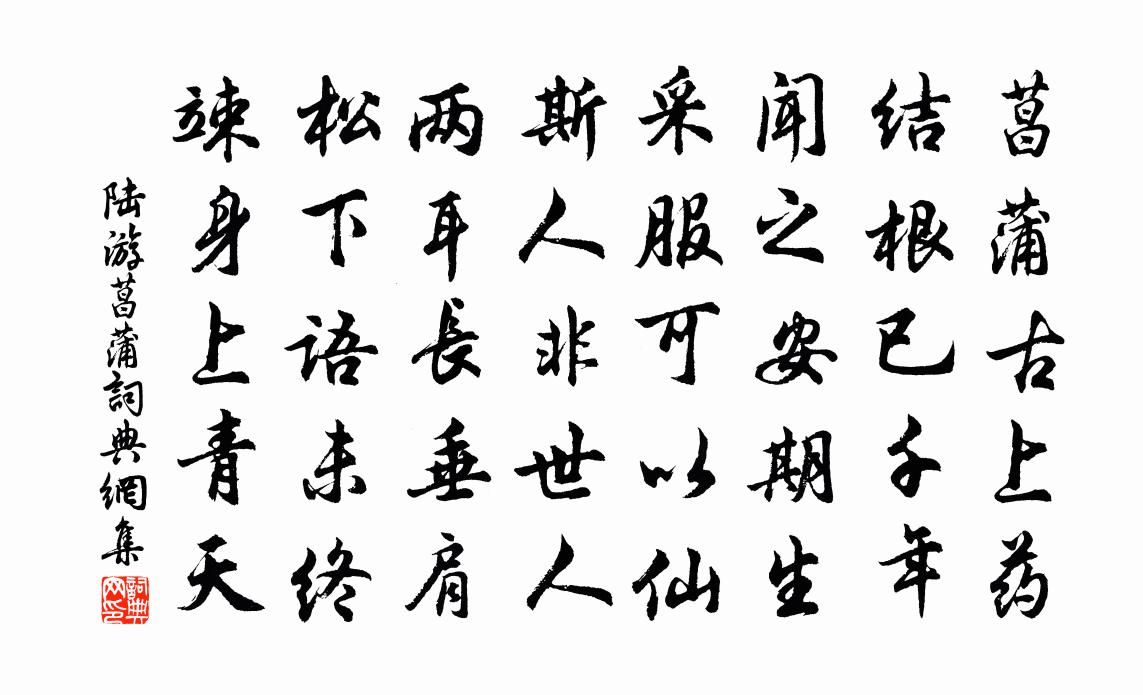 菖蒲古上药
结根已千年
闻之安期生
采服可以仙
斯人非世人
两耳長垂肩
松下语未终
竦身上青天
陆游菖蒲詞典網集
詞典
网印